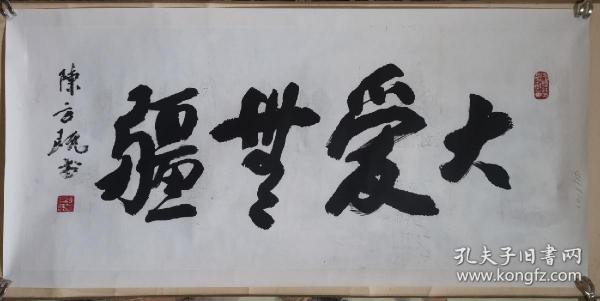 大爱無疆
陳方既书
孔夫子旧书网
www.kongfz.com